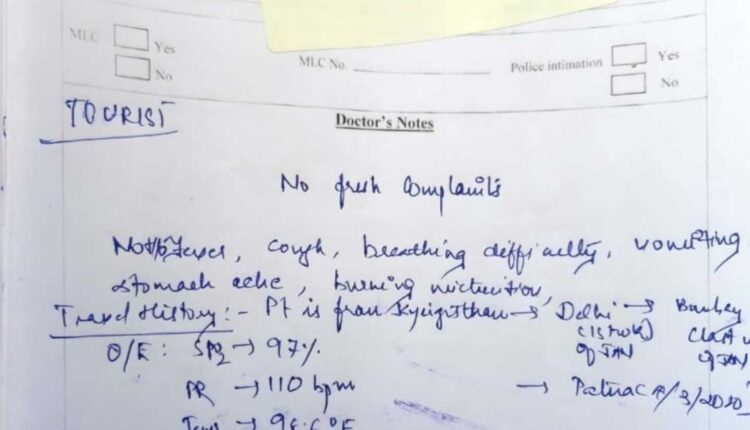 MLC Yes
No
MLC No.
Police intimation Yes
No
TOURIST
Doctor's Notes
No fresh Complaints
cough, breathing difficulty, vomiting
stomach ache, burning micturition
Travel History:- Pt is from Kyrigisthan → Delhi → Bombay
(1st wk) (last
of JAN of JAN
O/E: SPO2 → 97%
PR → 110 bpm → Patna